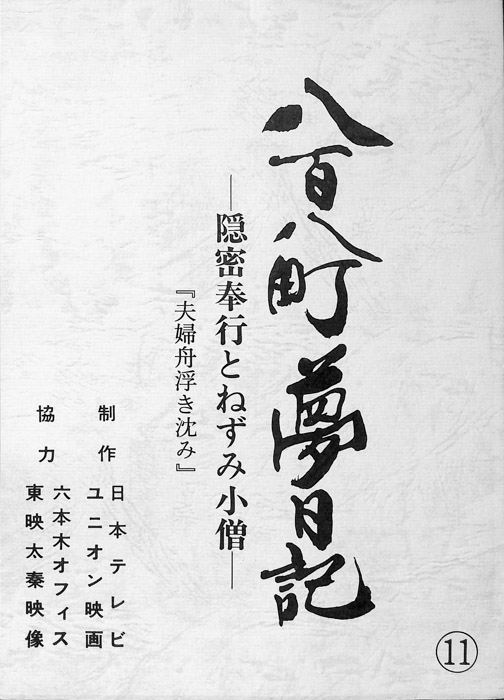 八百八町夢日記
―隠密奉行とねずみ小僧―
『夫婦舟浮き沈み』
制作
日本テレビ
ユニオン映画
協力
六本木オフィス
東映太秦映像
⑪